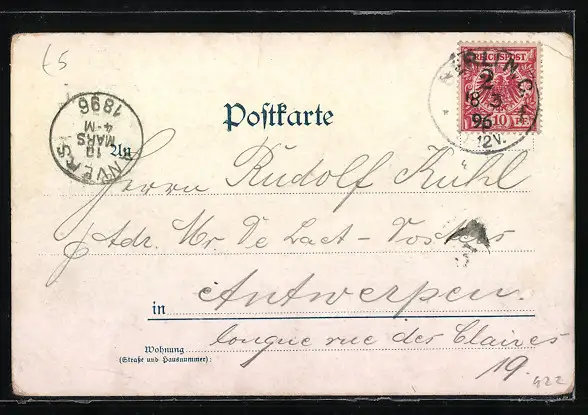 £5
Postkarte
REICHSPOST
10
BERLIN C.
2
8 3
96
12V.
ANVERS
10
MARS
4-M
1896
An
Herrn Rudolf Kühl
Adr. Mr. De Laet-
in Antwerpen.
longue rue des Claires
Wohnung
(Straße und Hausnummer):
19.
422